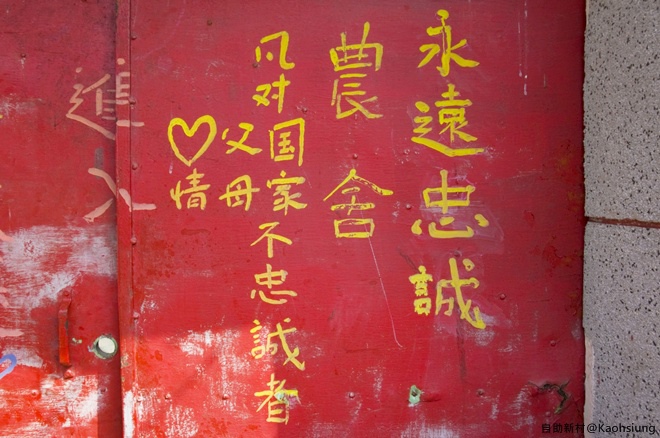 永遠忠誠
農舍
凡对国家不忠誠者
父母
♡情
進入
自助新村@Kaohsiung